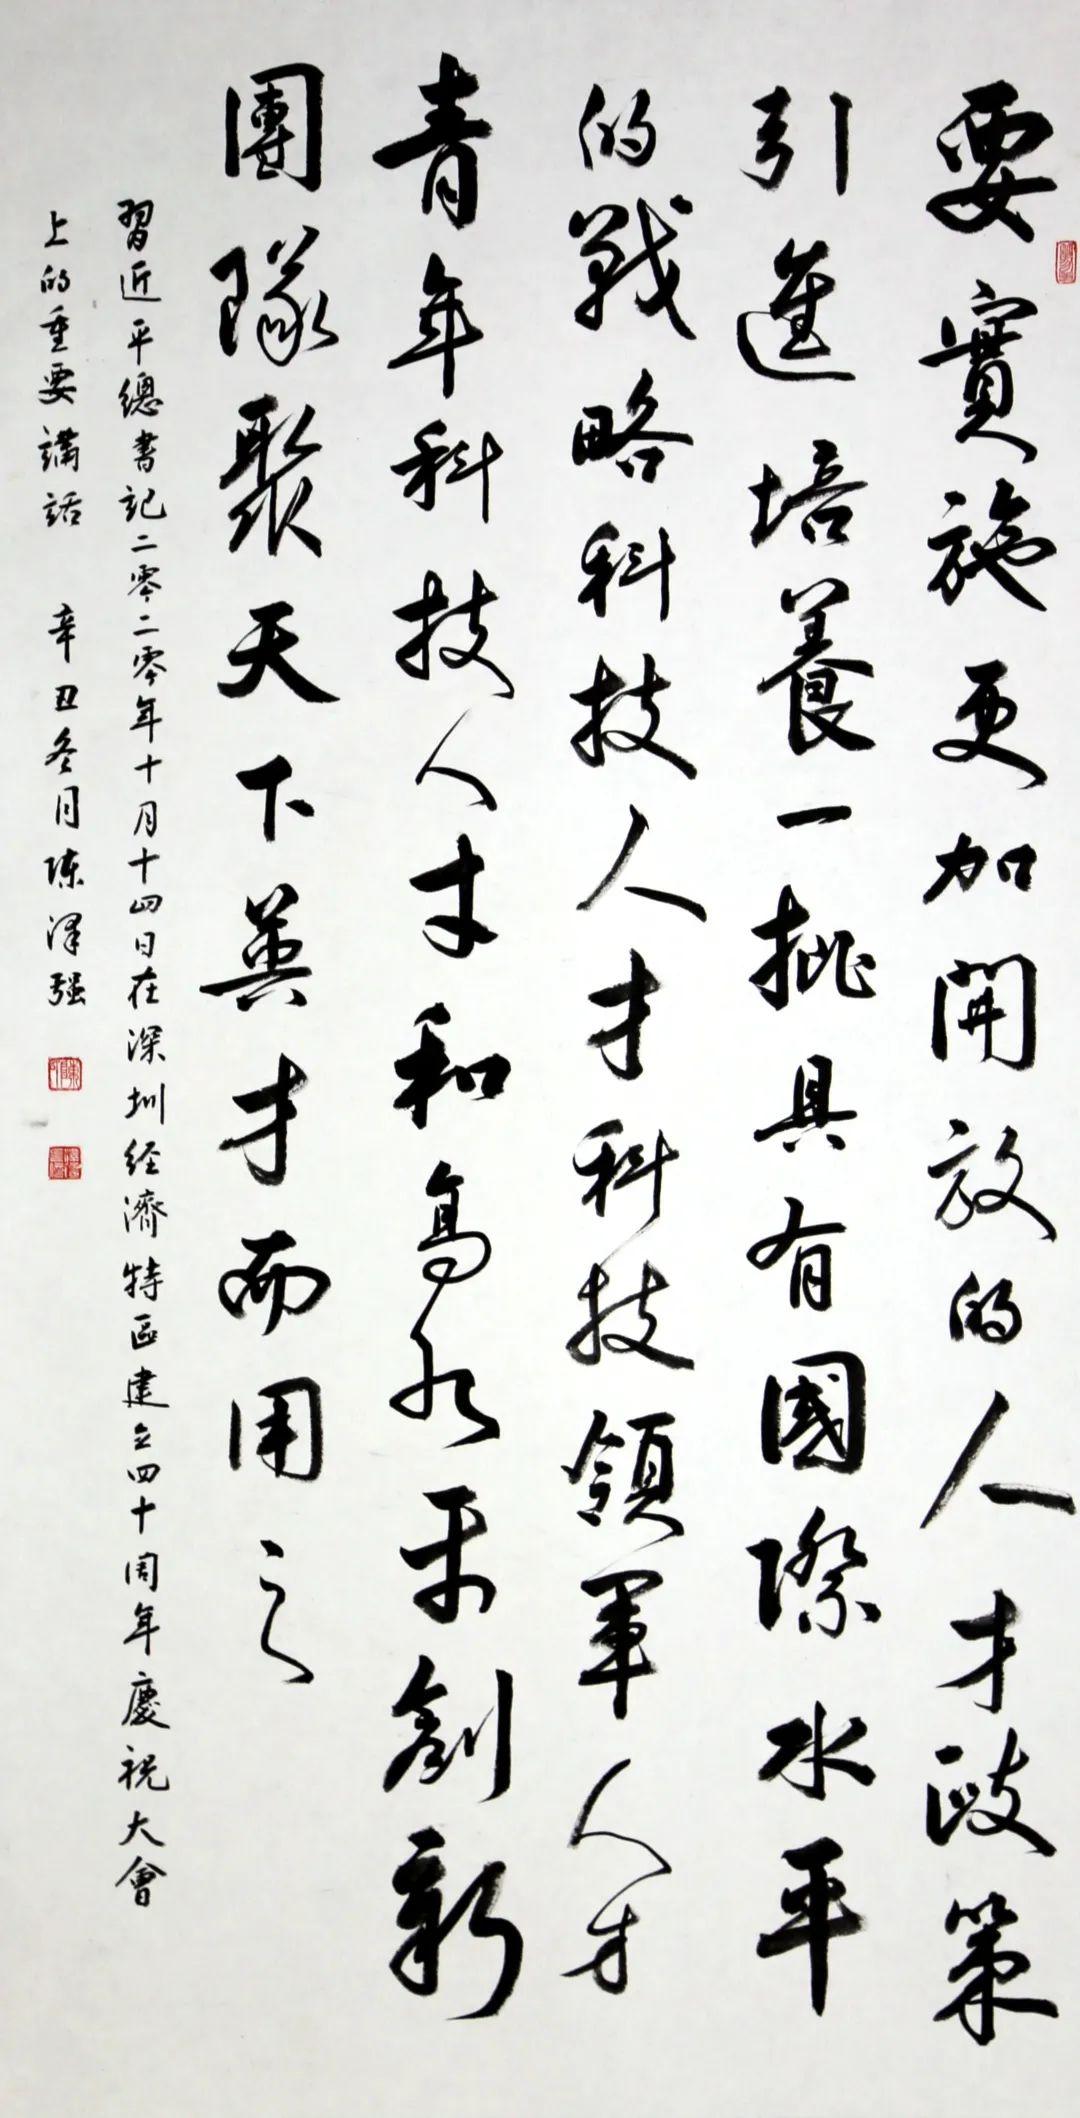 要實施更加開放的人才政策
引進培養一批具有國際水平
的戰略科技人才科技領軍人才
青年科技人才和高水平創新
團隊聚天下英才而用之
習近平總書記二零二零年十月十四日在深圳经濟特区建立四十周年慶祝大會
上的重要講話 辛丑冬月陳澤强